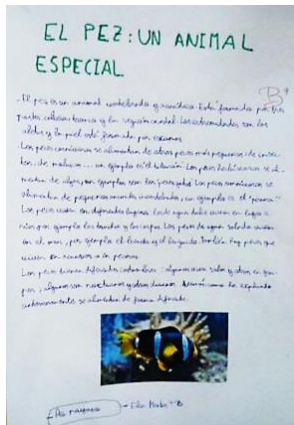 EL PEZ: UN ANIMAL
ESPECIAL
B+
- El pez es un animal vertebrado y acuático. Está formado por tres
partes: cabeza, tronco y la región caudal. Las extremidades son las
aletas y la piel está formada por escamas.
- Los peces carnívoros se alimentan de otros peces más pequeños, de
de moluscos ... un ejemplo es el tiburón. Los peces herbívoros se ali-
mentan de algas, un ejemplo son los Los peces omnívoros se
alimentan de pequeños animales un ejemplo es el
Los peces viven en diferentes lugares. Los de agua dulce viven en lagos o
ríos por ejemplo las truchas y las carpas. Los peces de agua salada viven
en el mar, por ejemplo el y el lenguado. También hay peces que
viven en
- Los peces tienen diferentes costumbres: algunos viven solos y otros en gru-
pos; algunos son nocturnos y otros diurnos. como he explicado
anteriormente se alimentan de forma diferente.
Pez payaso